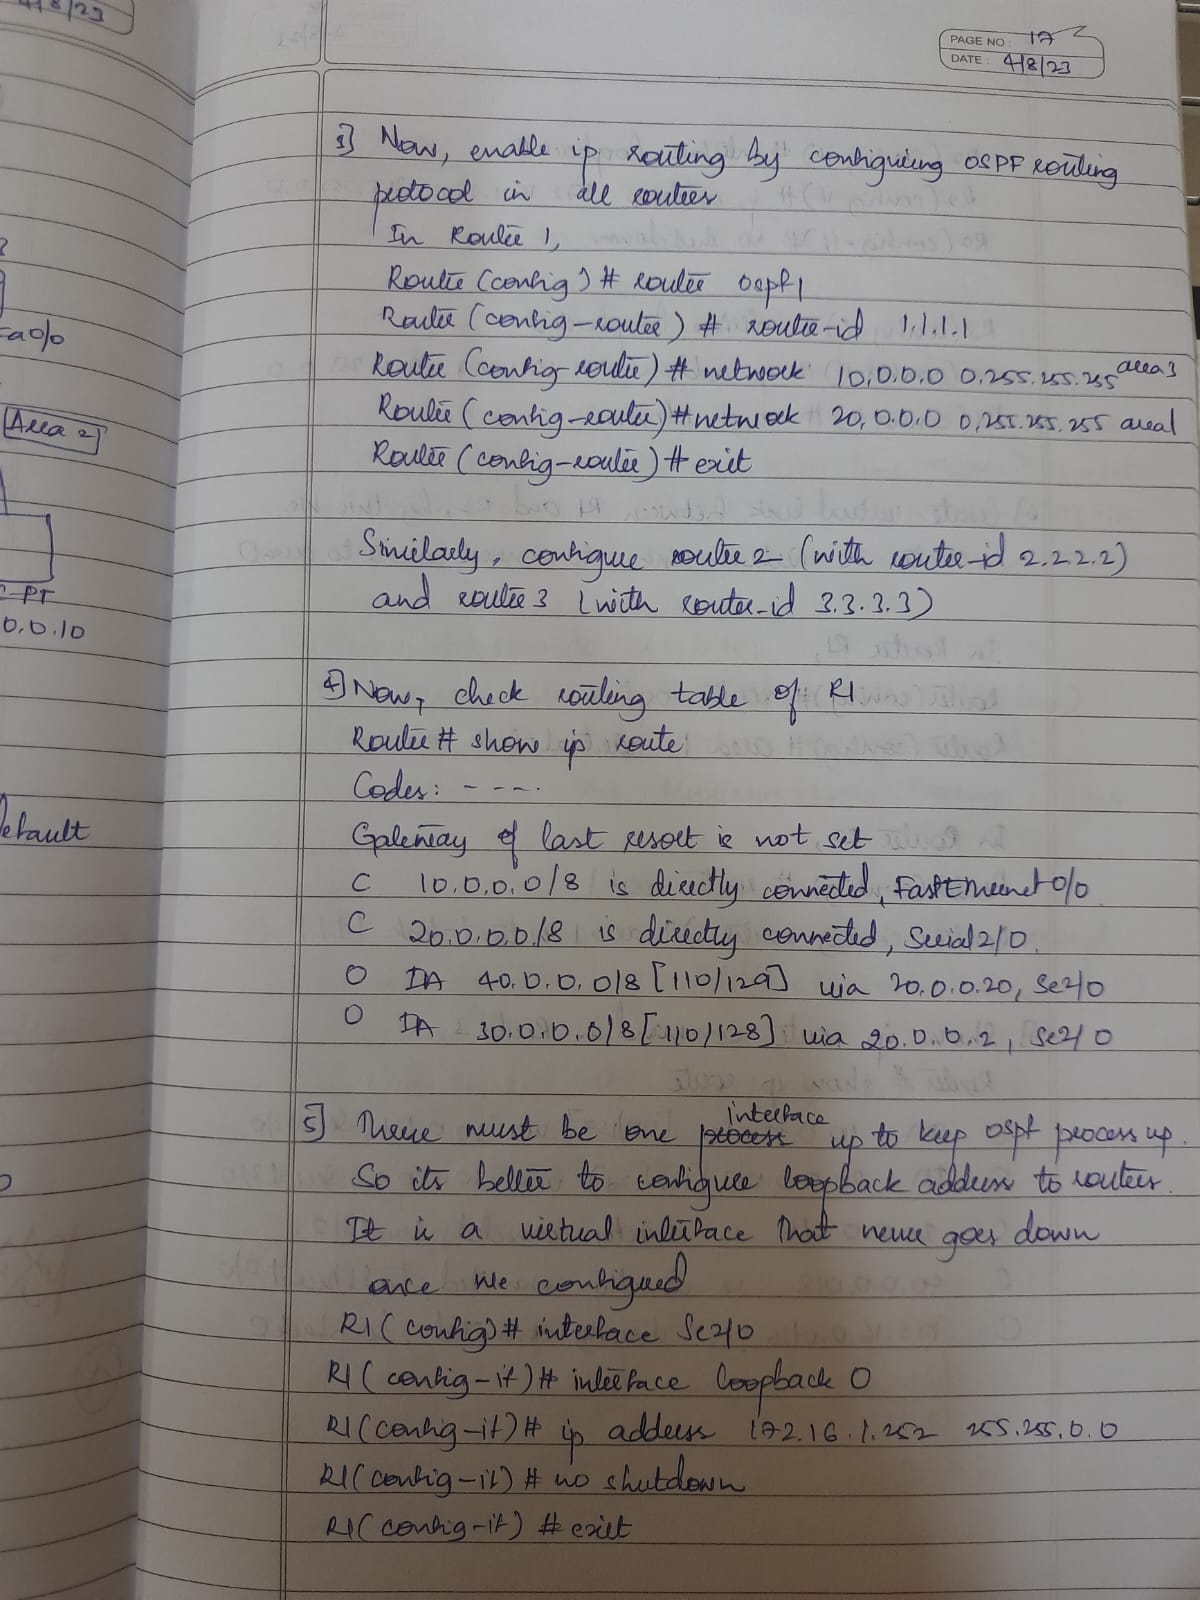 4/8/23
Fa0/0
Area 2
C-PT
0.0.10
Default
PAGE NO: 17
DATE: 4/8/23
3] Now, enable ip routing by configuring OSPF routing
protocol in all routers
In Router 1,
Router (config) # router ospf 1
Router (config-router) # router-id 1.1.1.1
Router (config-router) # network 10.0.0.0 0.255.255.255 area 3
Router (config-router) # network 20.0.0.0 0.255.255.255 area 1
Router (config-router) # exit
Similarly, configure router 2 (with router-id 2.2.2.2)
and router 3 (with router-id 3.3.3.3)
4] Now, check routing table of R1
Router # show ip route
Codes: ----.
Gateway of last resort is not set
C 10.0.0.0/8 is directly connected, FastEthernet 0/0
C 20.0.0.0/8 is directly connected, Serial 2/0.
O IA 40.0.0.0/8 [110/129] via 20.0.0.20, Se2/0
O IA 30.0.0.0/8 [110/128] via 20.0.0.2, Se2/0
5] There must be one process interface up to keep ospf process up.
So its better to configure loopback address to routers.
It is a virtual interface that never goes down
once we configured
R1 (config) # interface Se2/0
R1 (config-if) # interface loopback 0
R1 (config-if) # ip address 172.16.1.252 255.255.0.0
R1 (config-if) # no shutdown
R1 (config-if) # exit